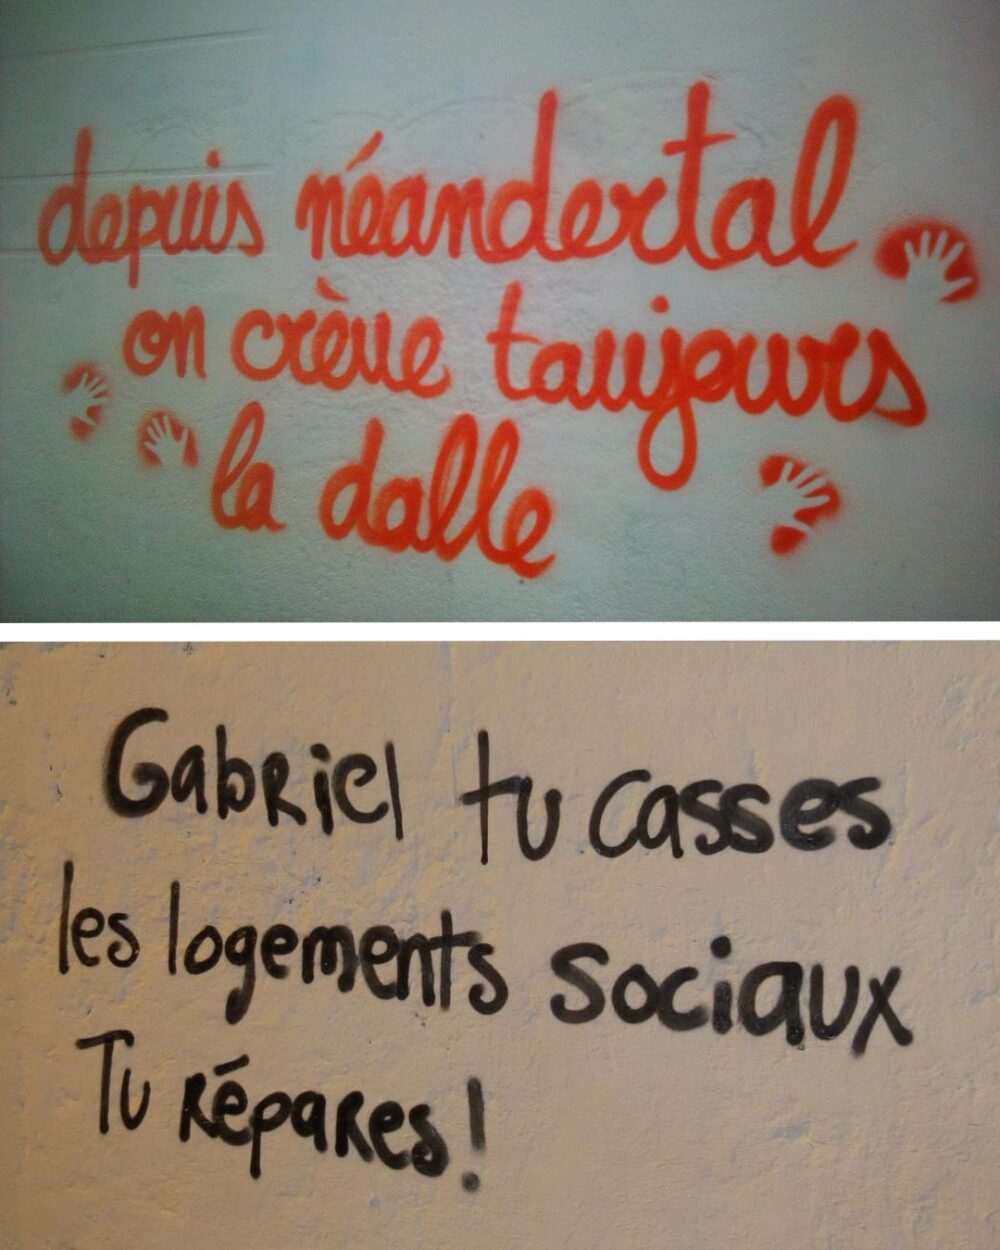 depuis néandertal
on crève toujours
la dalle
Gabriel tu casses
les logements sociaux
Tu répares!